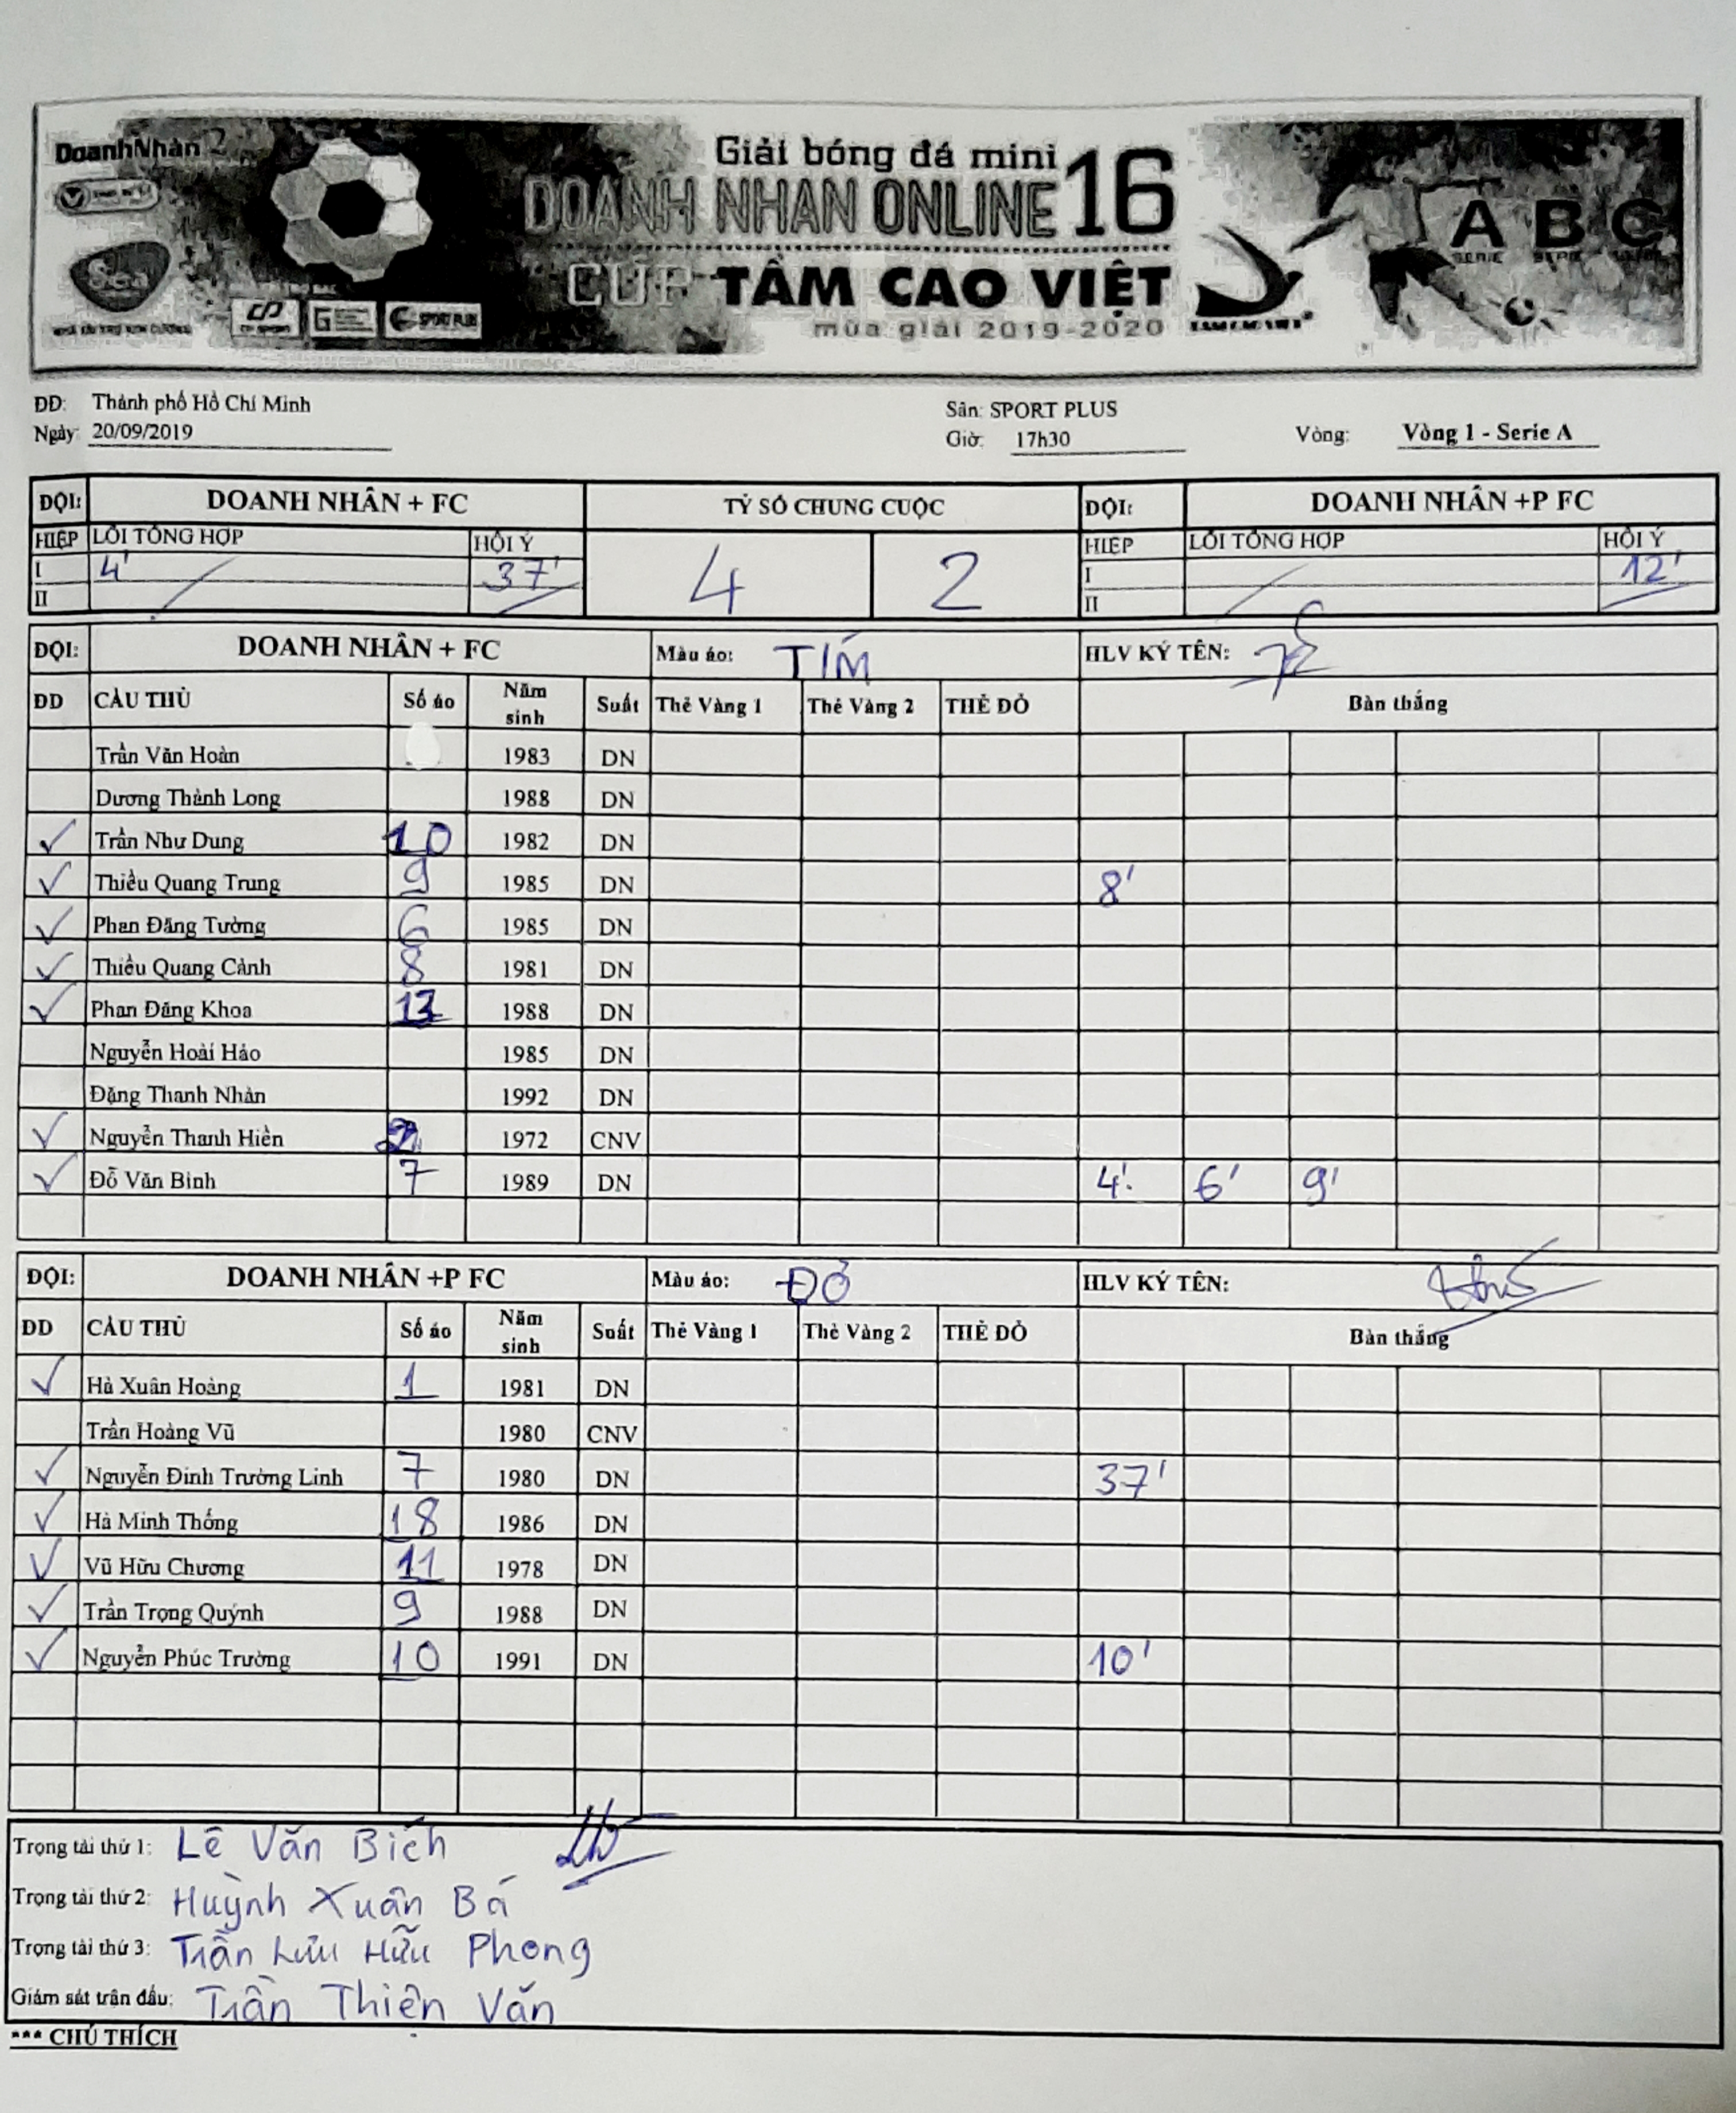 DoanhNhân
Giải bóng đá mini
DOANH NHÂN ONLINE 16
CÚP TẦM CAO VIỆT
mùa giải 2019-2020
Sea
SPORT PLUS
A B C
SERIE SERIE SERIE
ĐĐ: Thành phố Hồ Chí Minh Sân: SPORT PLUS
Ngày: 20/09/2019 Giờ: 17h30 Vòng: Vòng 1 - Serie A
ĐỘI: DOANH NHÂN + FC TỶ SỐ CHUNG CUỘC ĐỘI: DOANH NHÂN +P FC
HIỆP LỖI TỔNG HỢP HỘI Ý 4 2 HIỆP LỖI TỔNG HỢP HỘI Ý
I 4' 37' I 12'
II II
ĐỘI: DOANH NHÂN + FC Màu áo: TÍM HLV KÝ TÊN:
ĐD CẦU THỦ Số áo Năm sinh Suất Thẻ Vàng 1 Thẻ Vàng 2 THẺ ĐỎ Bàn thắng
Trần Văn Hoàn 1983 DN
Dương Thành Long 1988 DN
✓ Trần Như Dung 10 1982 DN
✓ Thiều Quang Trung 9 1985 DN 8'
✓ Phan Đăng Tường 6 1985 DN
✓ Thiều Quang Cảnh 8 1981 DN
✓ Phan Đăng Khoa 1988 DN
Nguyễn Hoài Hảo 1985 DN
Đặng Thanh Nhàn 1992 DN
✓ Nguyễn Thanh Hiền 1972 CNV
✓ Đỗ Văn Bình 7 1989 DN 4' 6' 9'
ĐỘI: DOANH NHÂN +P FC Màu áo: ĐỎ HLV KÝ TÊN:
ĐD CẦU THỦ Số áo Năm sinh Suất Thẻ Vàng 1 Thẻ Vàng 2 THẺ ĐỎ Bàn thắng
✓ Hà Xuân Hoàng 1 1981 DN
Trần Hoàng Vũ 1980 CNV
✓ Nguyễn Đình Trường Linh 7 1980 DN 37'
✓ Hà Minh Thống 18 1986 DN
✓ Vũ Hữu Chương 11 1978 DN
✓ Trần Trọng Quýnh 9 1988 DN
✓ Nguyễn Phúc Trường 10 1991 DN 10'
Trọng tài thứ 1: Lê Văn Bích
Trọng tài thứ 2: Huỳnh Xuân Bá
Trọng tài thứ 3: Trần Lưu Hữu Phong
Giám sát trận đấu: Trần Thiện Văn
*** CHÚ THÍCH